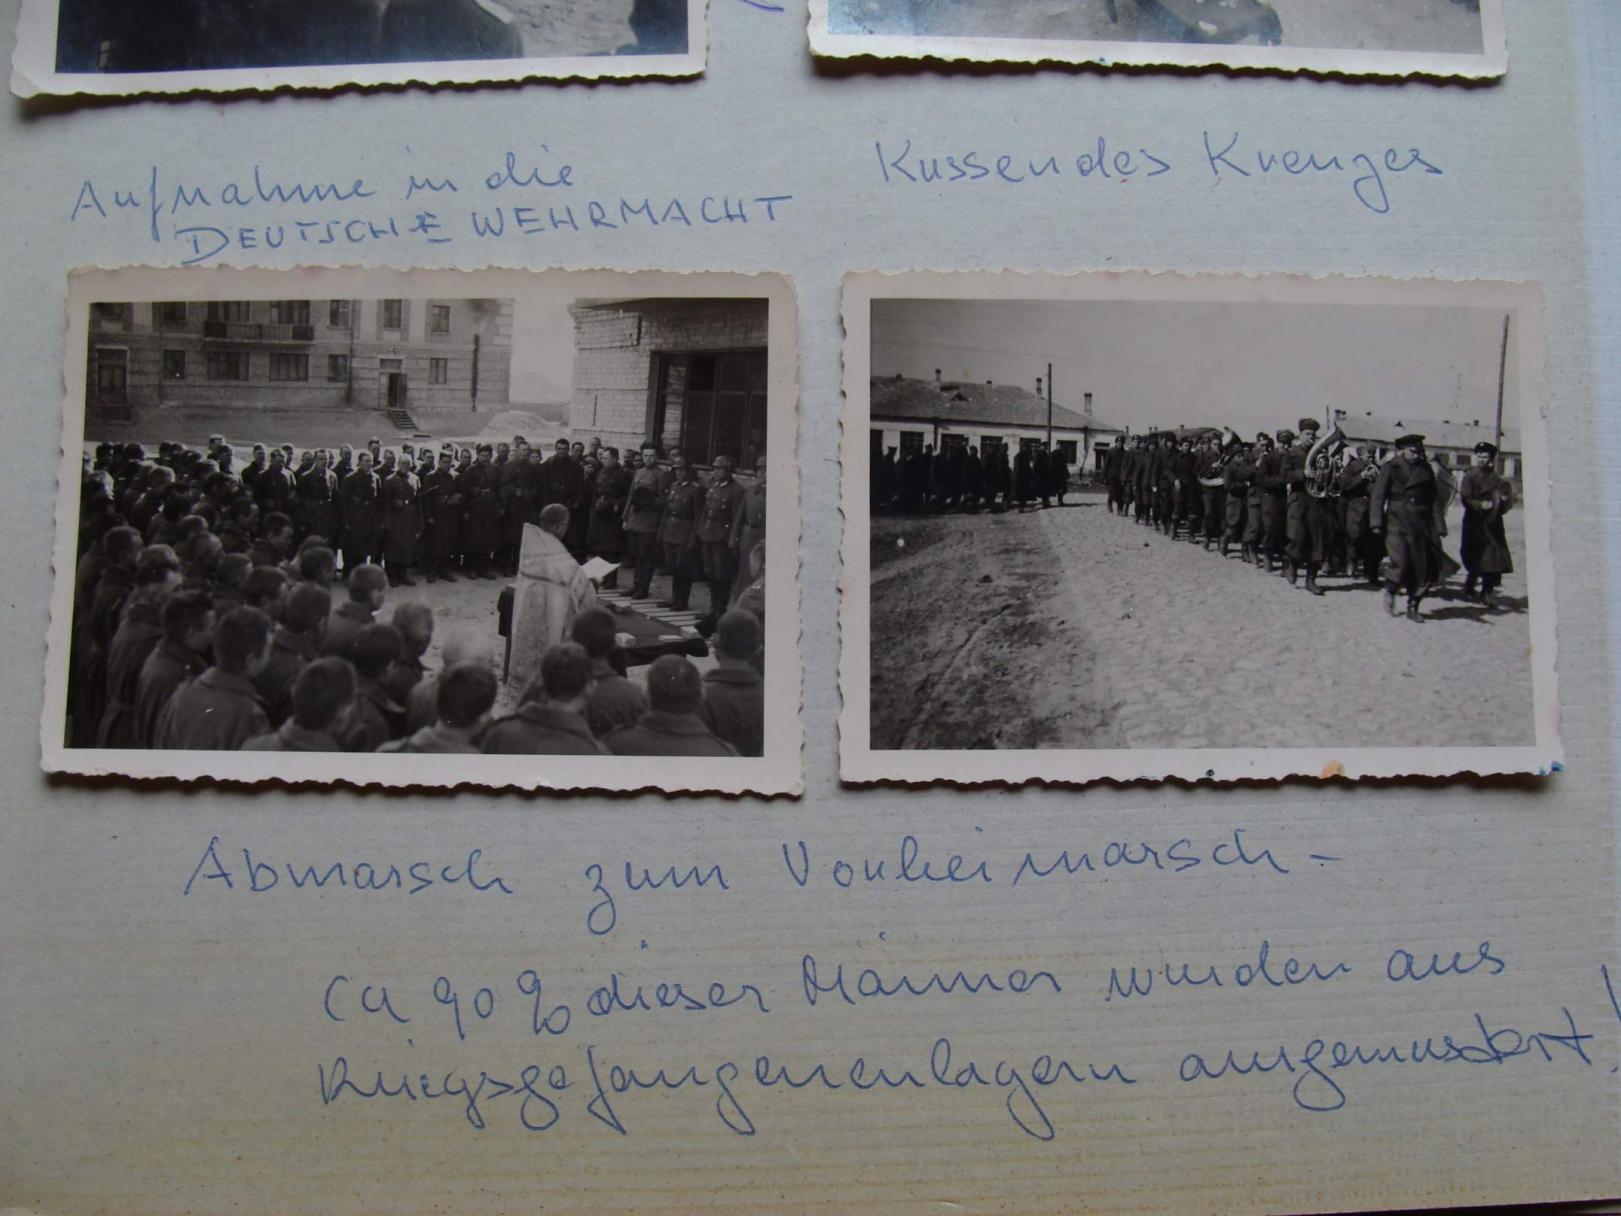 Aufnahme in die
DEUTSCHE WEHRMACHT
Küssen des Kreuzes
Abmarsch zum Vorbeimarsch -
Ca 90 % dieser Männer wurden aus
Kriegsgefangenenlagern ausgemustert!